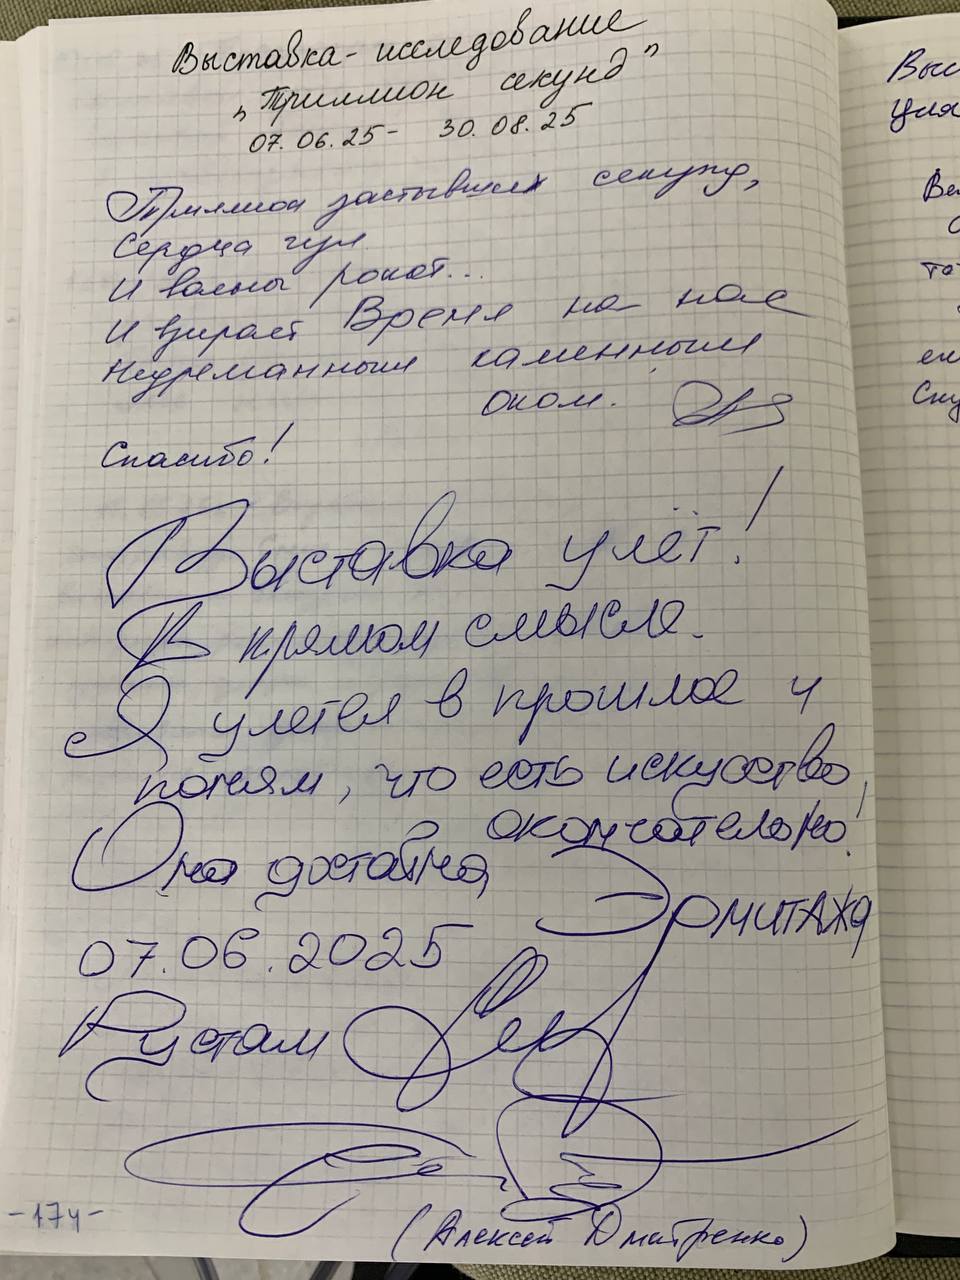 Выставка-исследование
„Триллион секунд"
07.06.25- 30.08.25
Триллион застывших секунд,
Сердца гул
И волны рокот...
И взирает Время на нас
Недреманным каменным
оком.
Спасибо!
Выставка улёт!
В прямом смысле.
Я улетел в прошлое и
поням, что есть искусство
окончательно!
Она достойна Эрмитажа
07.06.2025
Рустам
(Алексей Дмитренко)
-174-
Выс
Ве
то